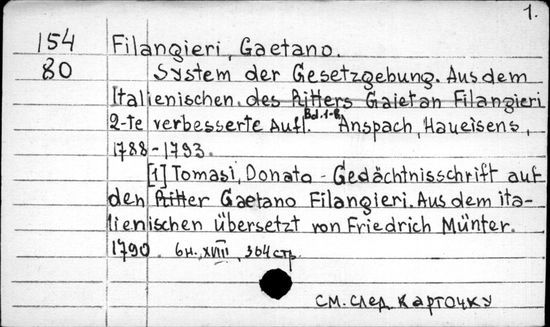 1.
154 Filangieri, Gaetano.
80 System der Gesetzgebung. Aus dem
Italienischen des Ritters Gaietan Filangieri
2-te verbesserte Aufl. Bd. 1-8. Anspach, Haueisens,
1788-1793.
[1] Tomasi, Donato - Gedächtnisschrift auf
den Ritter Gaetano Filangieri. Aus dem ita-
lienischen übersetzt von Friedrich Münter.
1790. 6н., XVIII, 364 стр.
см. след. карточку